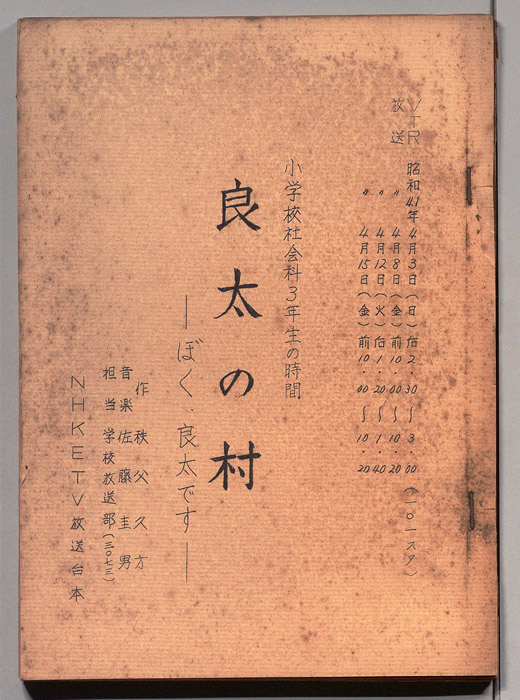 VTR 昭和41年4月3日(日)后2.30〜3.00(一〇一スタ)
放送 〃 4月8日(金)前10.00〜10.20
〃 4月12日(火)后1.20〜1.40
〃 4月15日(金)前10.00〜10.20
小学校社会科3年生の時間
良太の村
—ぼく、良太です—
作 秩父久方
音楽 佐藤圭男
担当 学校放送部(三〇七三)
NHKETV放送台本